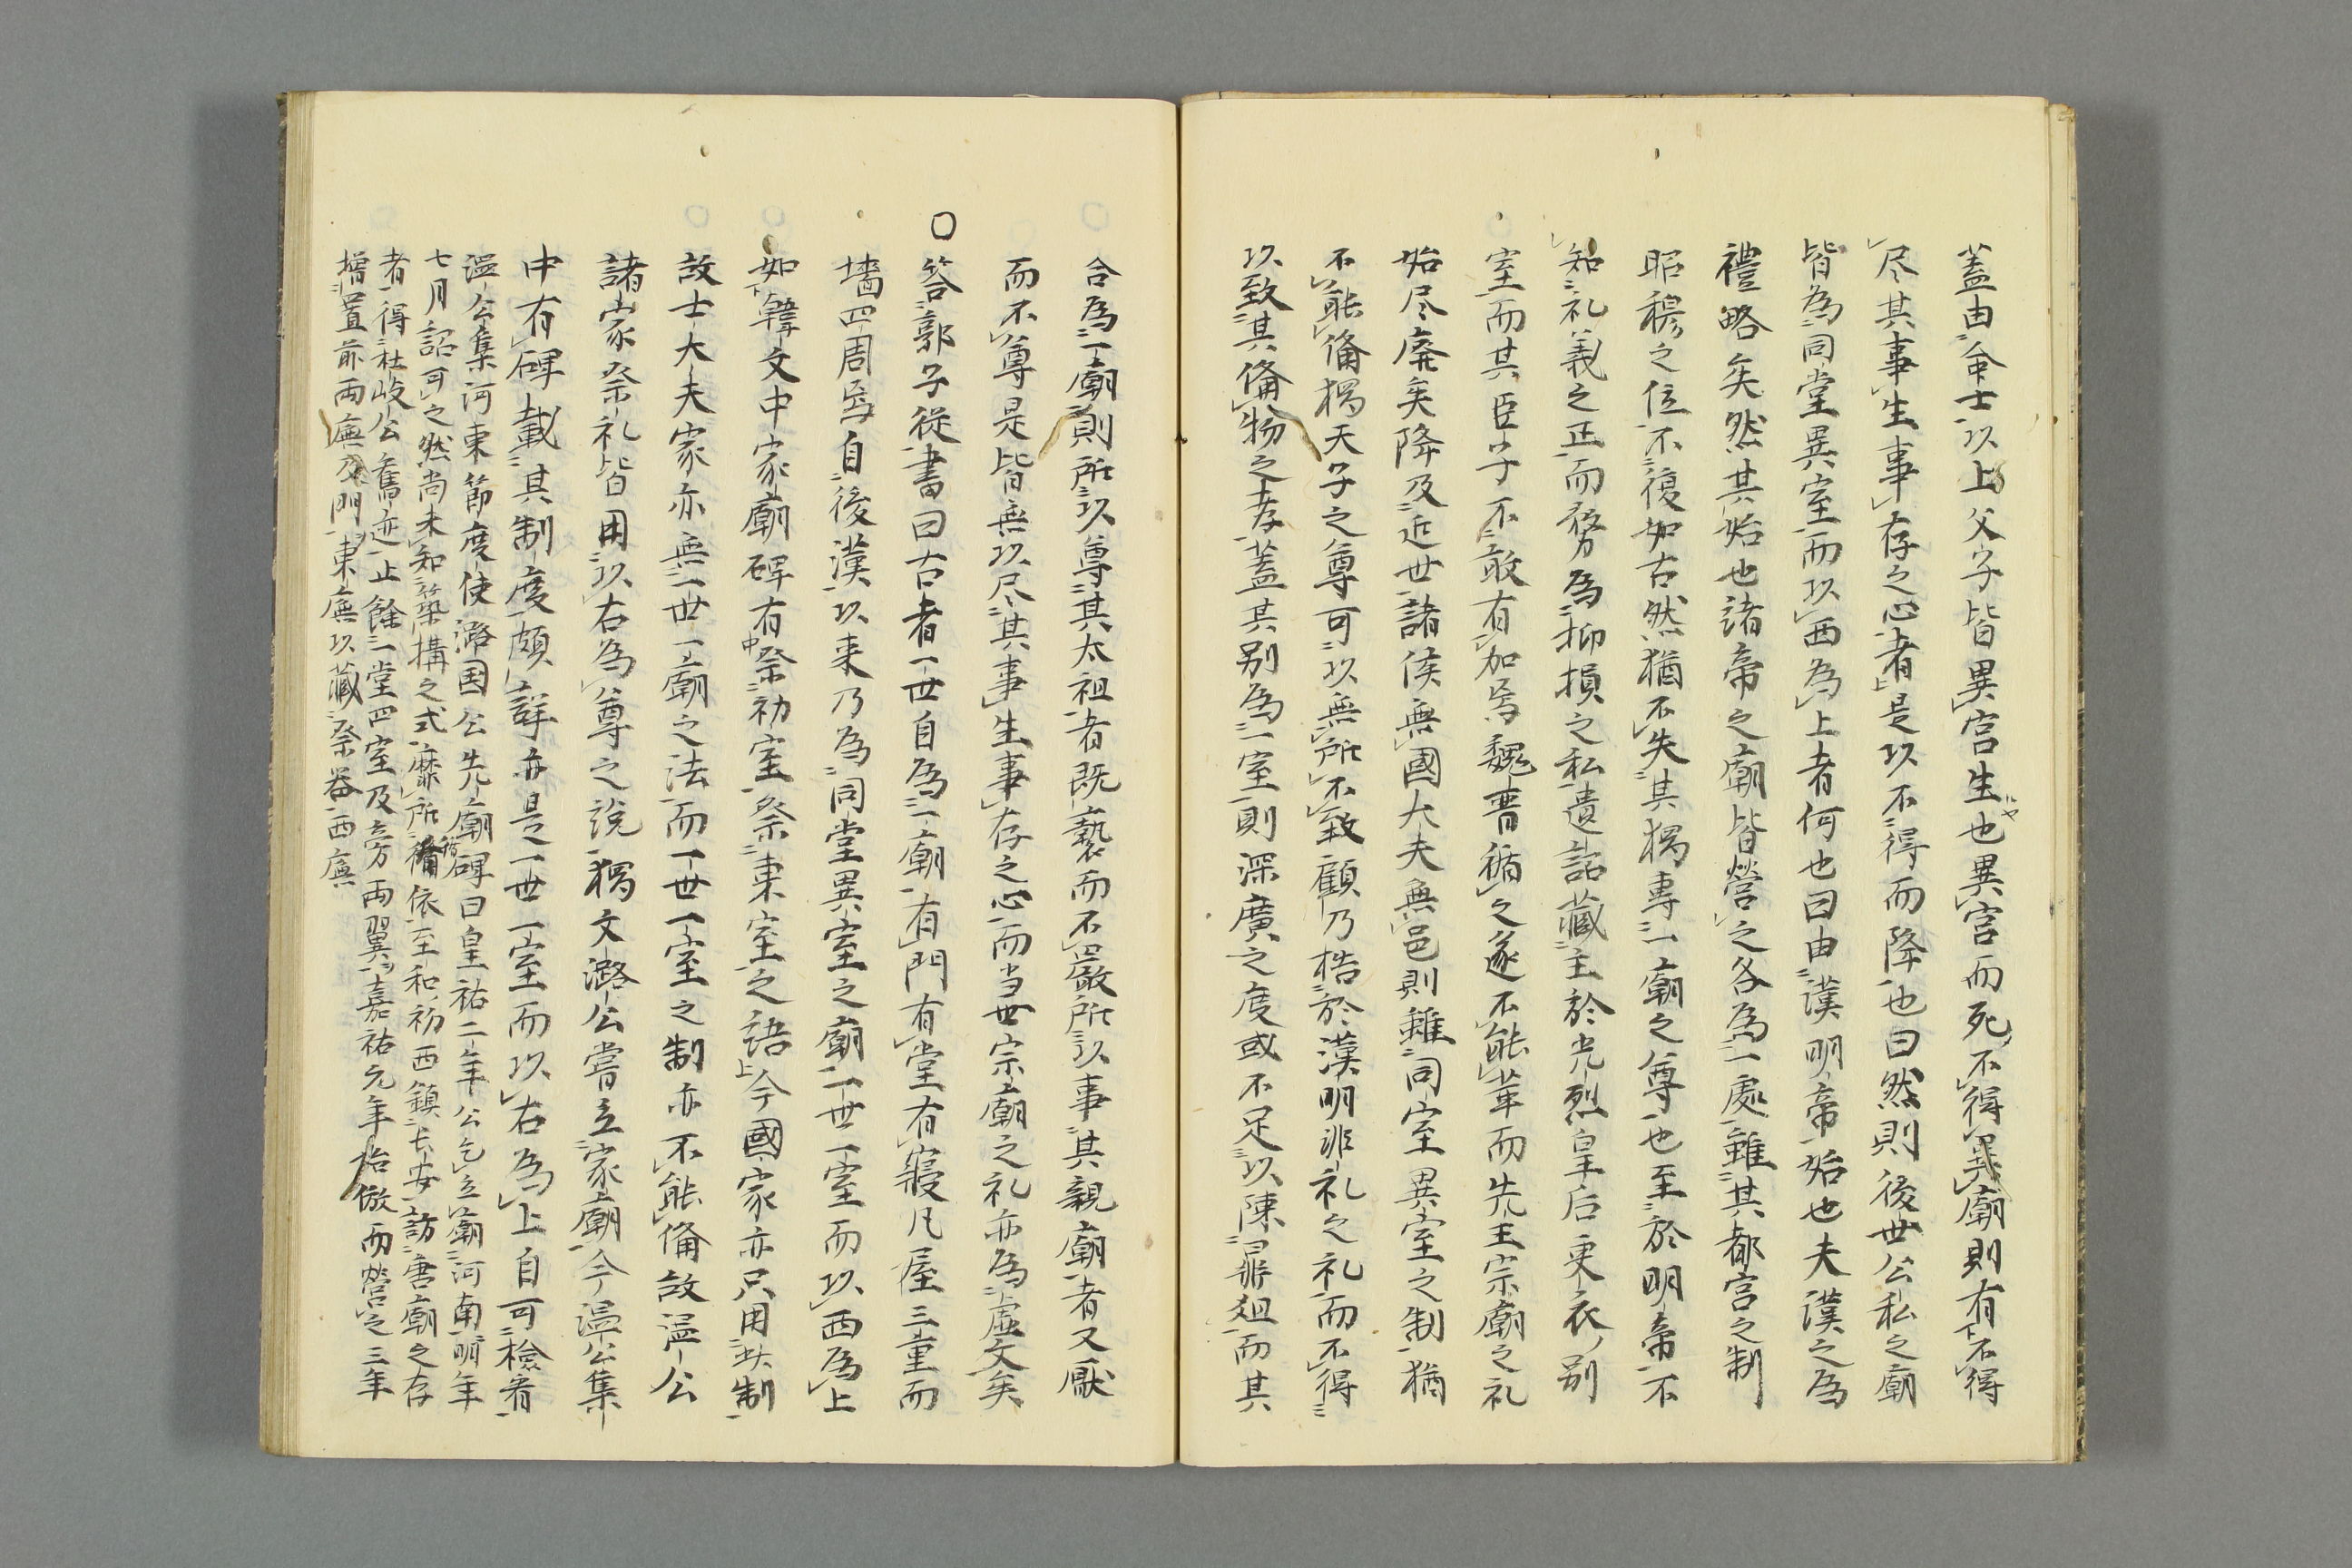 蓋由命士以上父子皆異宮生也異宮而死不得異廟則有不得
尽其事生事存之心者是以不得而降也曰然則後世公私之廟
皆為同堂異室而以西為上者何也曰由漢明帝始也夫漢之為
禮略矣然其始也諸帝之廟皆營之各為一處雖其都宮之制
昭穆之位不復如古然猶不失其獨專一廟之尊也至於明帝不
知礼義之正而務為抑損之私遺詔藏主於光烈皇后更衣別
室而其臣子不敢有加焉魏晋循之遂不能革而先王宗廟之礼
始尽廃矣降及近世諸侯無國大夫無邑則雖同室異室之制猶
不能備獨天子之尊可以無所不致顧乃梏於漢明非礼之礼而不得
以致其備物之孝蓋其別為一室則深廣之度或不足以陳鼎俎而其
合為一廟則所以尊其太祖者既褻而不嚴所以事其親廟者又厭
而不尊是皆無以尽其事生事存之心而当世宗廟之礼亦為虛文矣
○答郭子從書曰古者一世自為一廟有門有堂有寢凡屋三重而
墻四周焉自後漢以来乃為同堂異室之廟一世一室而以西為上
如韓文中家廟碑有祭初室祭東室之語今國家亦只用此制
故士大夫家亦無一世一廟之法而一世一室之制亦不能備故温公
諸家祭礼皆用以右為尊之説獨文潞公嘗立家廟今温公集
中有碑載其制度頗詳亦是一世一室而以右為上自可檢看
温公集河東節度使潞国公先廟碑曰皇祐二年公乞立廟河南明年
七月詔可之然尚未知築構之式靡所循依至和初西鎮長安訪唐廟之存
者得杜岐公舊迹止餘一堂四室及旁両翼嘉祐元年始倣而營之三年
増置前両廡及門東廡以藏祭器西廡